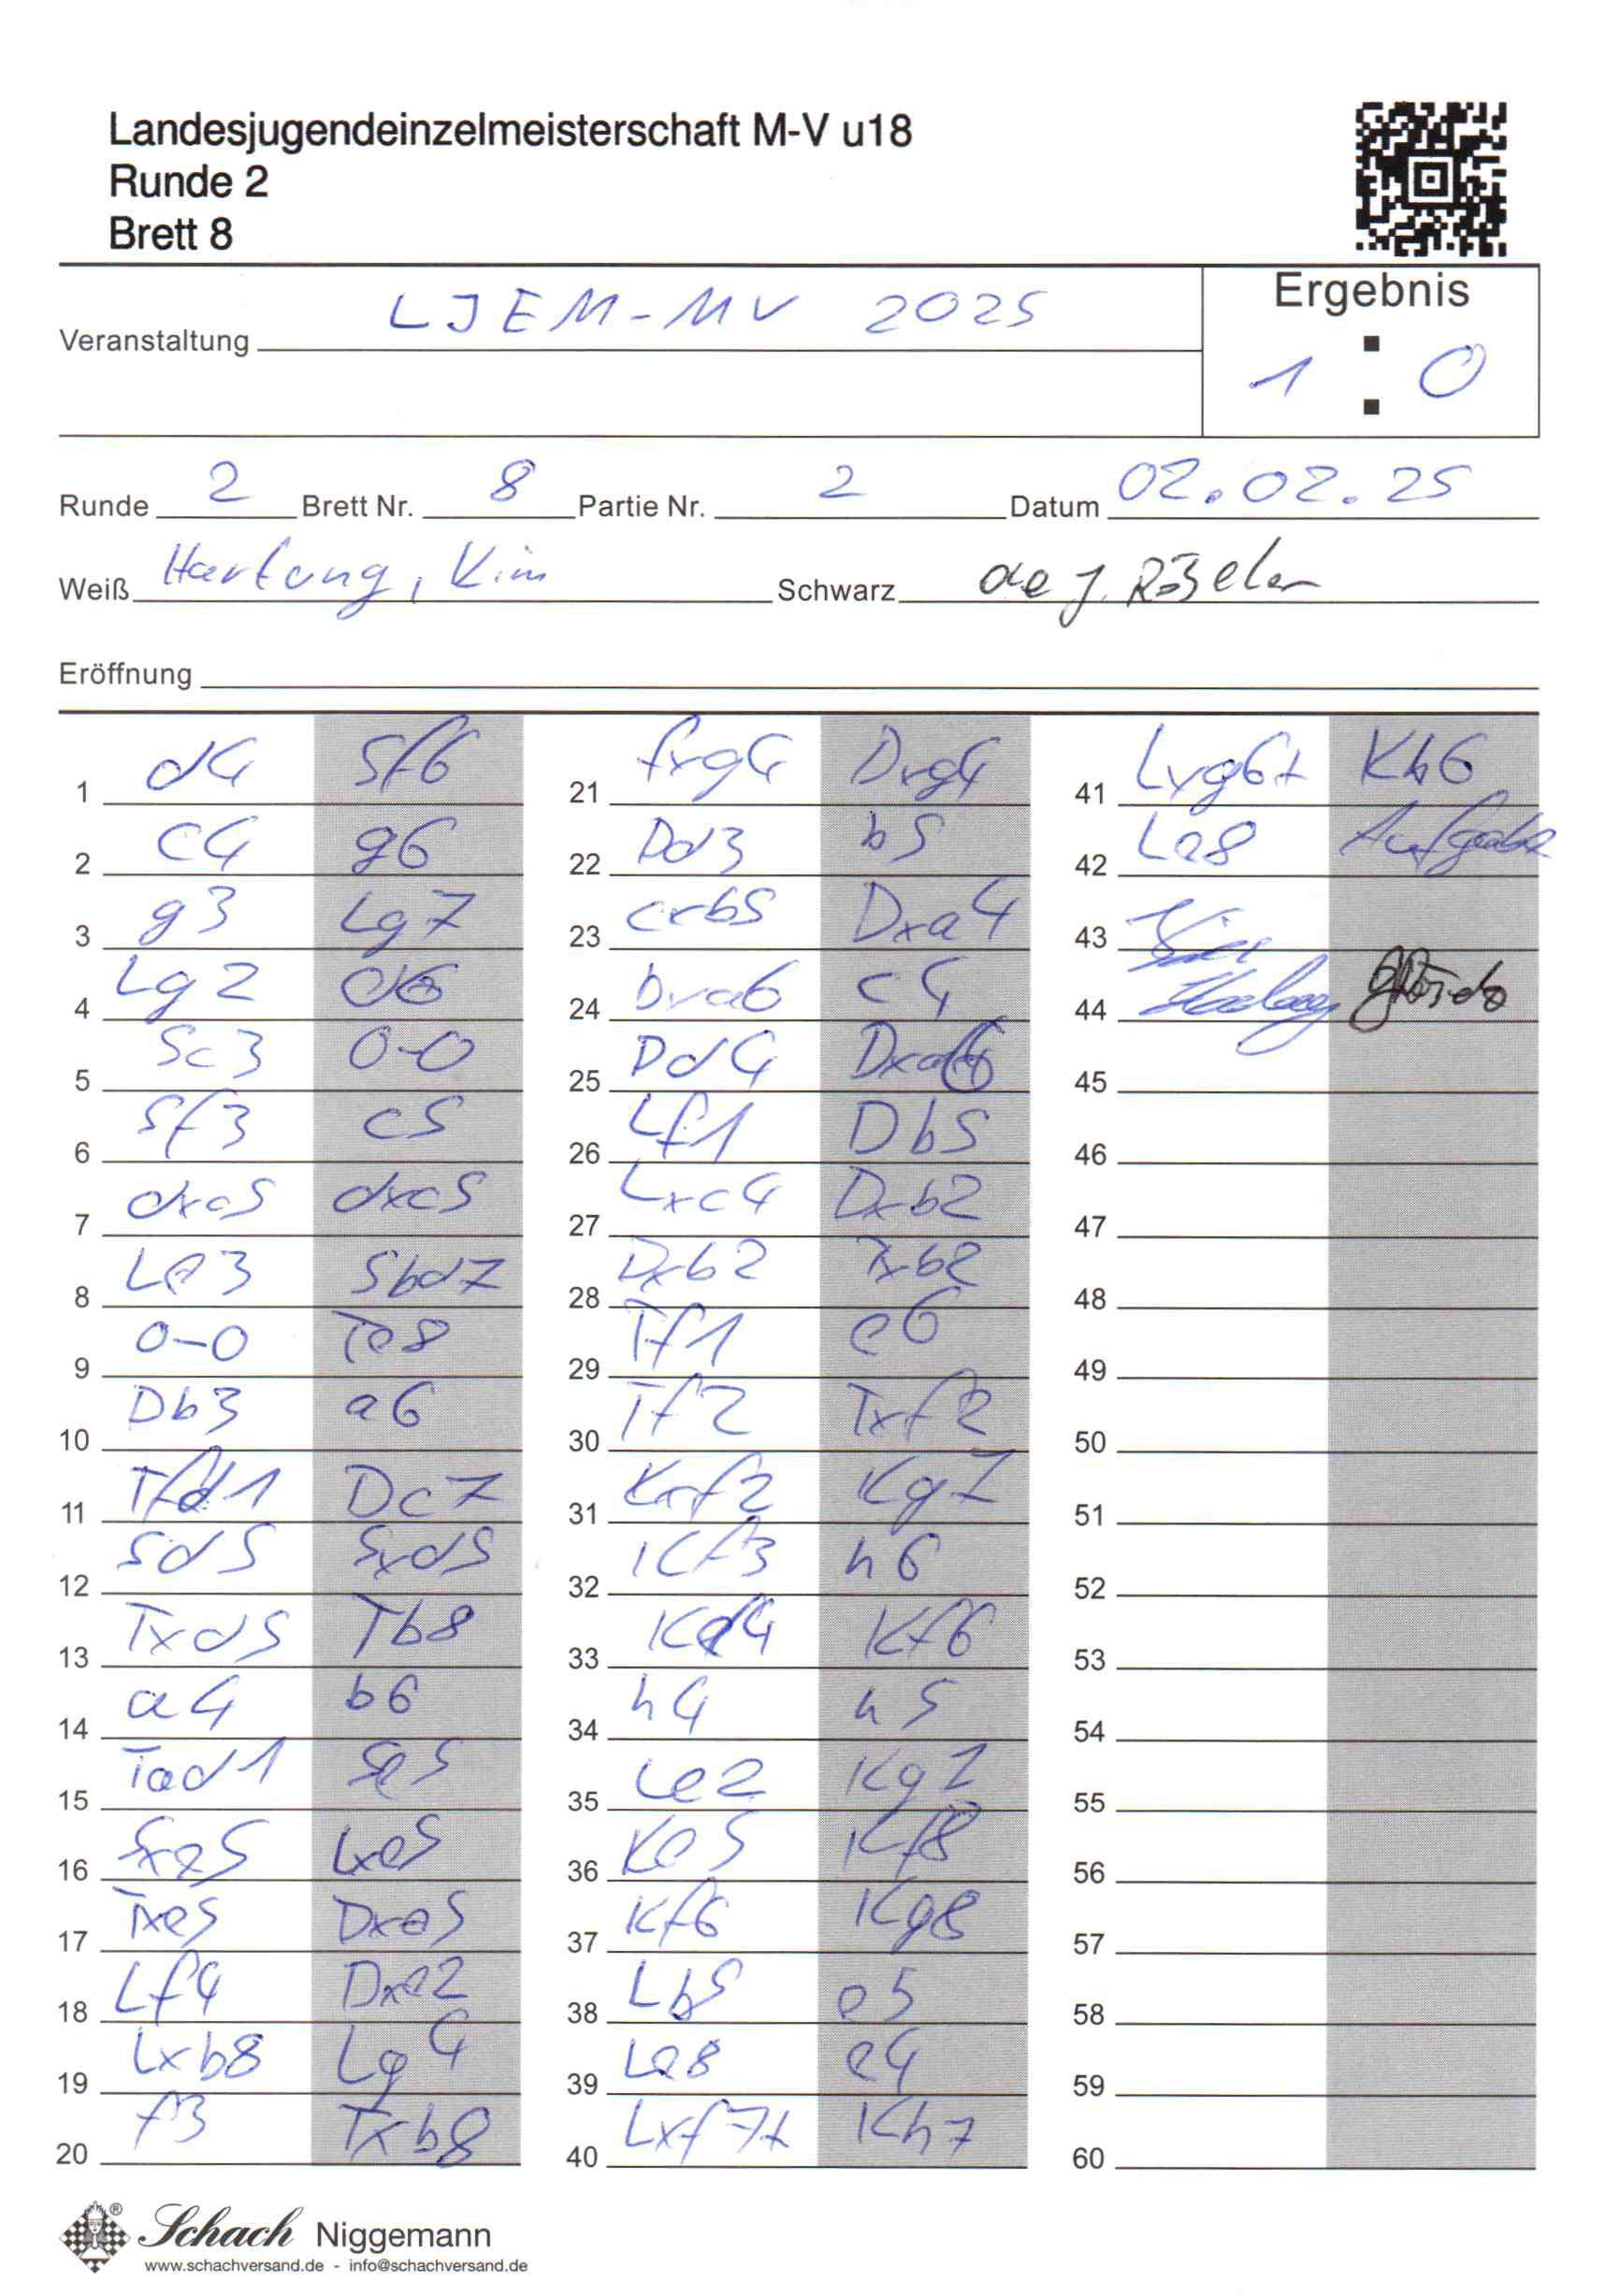 Landesjugendeinzelmeisterschaft M-V u18
Runde 2
Brett 8
Veranstaltung LJEM-MV 2025
Ergebnis
1 : 0
Runde 2 Brett Nr. 8 Partie Nr. 2 Datum 02.02.25
Weiß Hartung, Kim Schwarz
Eröffnung
1 d4 Sf6
2 c4 g6
3 g3 Lg7
4 Lg2 d6
5 Sc3 0-0
6 Sf3 c5
7 dxc5 dxc5
8 Le3 Sbd7
9 0-0 Te8
10 Db3 a6
11 Tfd1 Dc7
12 Sd5 Sxd5
13 Txd5 Tb8
14 a4 b6
15 Tad1 Se5
16 Sxe5 Lxe5
17 Txe5 Dxe5
18 Lf4 Dxe2
19 Lxb8 Lg4
20 f3 Txb8
21 fxg4 Dxg4
22 Dd3 b5
23 cxb5 Dxa4
24 bxa6 c4
25 Dd4 Dxa6
26 Lf1 Db5
27 Lxc4 Dxb2
28 Dxb2 Txb2
29 Tf1 e6
30 Tf2 Txf2
31 Kxf2 Kg7
32 Kf3 h6
33 Kf4 Kf6
34 h4 h5
35 Le2 Kg7
36 Ke5 Kf8
37 Kf6 Kg8
38 Lb5 e5
39 Le8 e4
40 Lxf7+ Kh7
41 Lxg6+ Kh6
42 Le8 Aufgabe
43 Kim
44 Hartung
45
46
47
48
49
50
51
52
53
54
55
56
57
58
59
60
Schach Niggemann
www.schachversand.de - info@schachversand.de